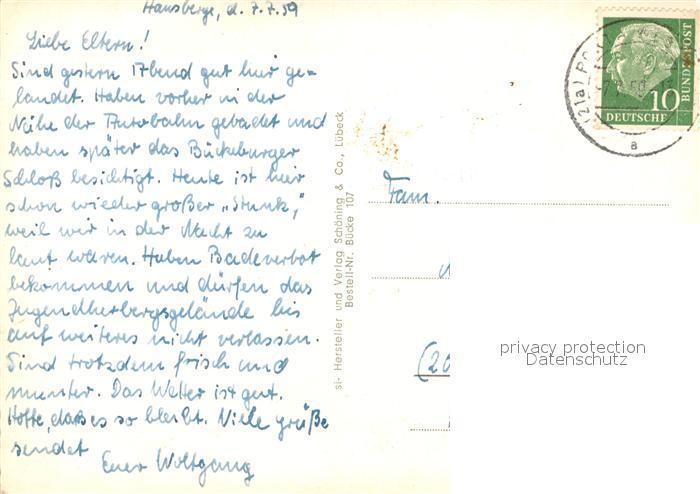 Hausberge, d. 7.7.59
Liebe Eltern!
Sind gestern Abend gut hier ge-
landet. Haben vorher in der
Nähe der Autobahn gebadet und
haben später das Bückeburger
Schloß besichtigt. Heute ist hier
schon wieder großer „Stunk,"
weil wir in der Nacht zu
laut waren. Haben Badeverbot
bekommen und dürfen das
Jugendherbergsgelände bis
auf weiteres nicht verlassen.
Sind trotzdem frisch und
munter. Das Wetter ist gut.
Hoffe, daß es so bleibt. Viele Grüße
sendet
Euer Wolfgang
si- Hersteller und Verlag Schöning & Co., Lübeck
Bestell-Nr. Bücke 107
10
DEUTSCHE
BUNDESPOST
(21a)
a
Fam.
(20
privacy protection
Datenschutz